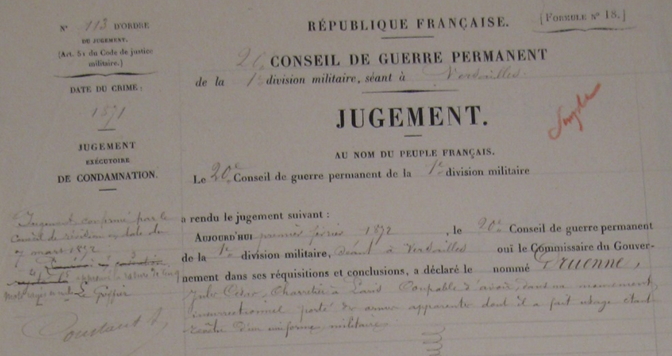 N° 113 D'ORDRE
DU JUGEMENT.
(Art. 51 du Code de justice
militaire.)
DATE DU CRIME:
1871
JUGEMENT
EXÉCUTOIRE
DE CONDAMNATION.
Jugement confirmé par le
Conseil de révision en date du
7 mars 1872
Le Greffier
RÉPUBLIQUE FRANÇAISE.
(FORMULE N° 18.)
20e CONSEIL DE GUERRE PERMANENT
de la 1e division militaire, séant à Versailles
JUGEMENT.
AU NOM DU PEUPLE FRANÇAIS.
Le 20e Conseil de guerre permanent de la 1e division militaire
a rendu le jugement suivant :
AUJOURD'HUI premier février 1872, le 20e Conseil de guerre permanent
de la 1e division militaire, séant à Versailles ouï le Commissaire du Gouver-
nement dans ses réquisitions et conclusions, a déclaré le nommé Druenne,
Jules César, à Paris Coupable d'avoir dans un mouvement
insurrectionnel porté des armes apparentes dont il a fait usage étant
d'un uniforme militaire